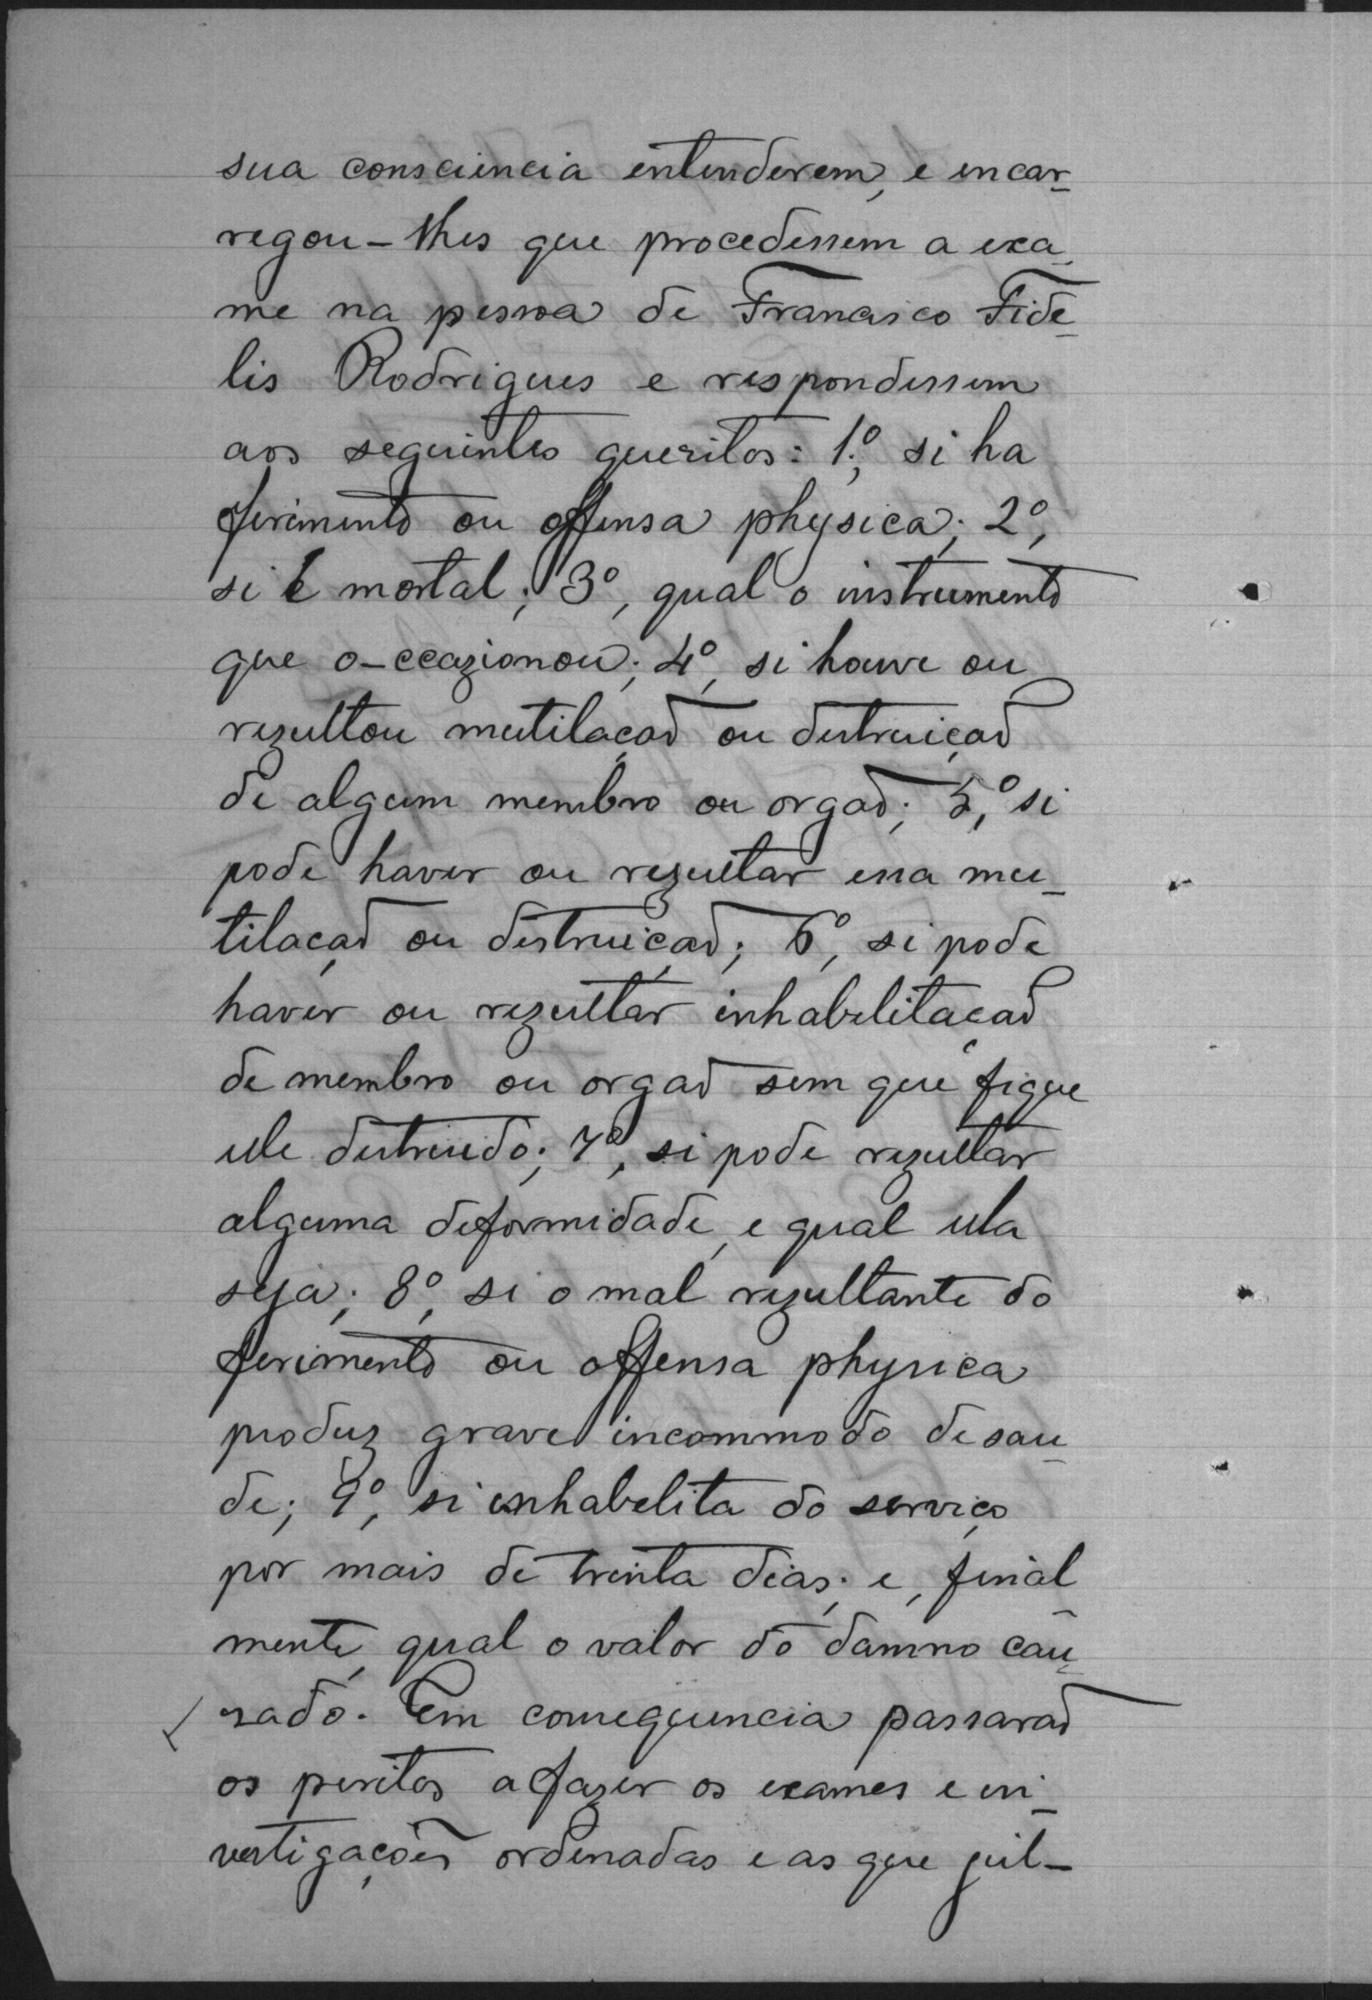 sua consciencia entenderem, e encar-
regou-lhes que procedessem a exa-
me na pessoa de Francisco Fide-
lis Rodrigues e respondessem
aos seguintes quezitos: 1º, si ha
ferimento ou offensa physica; 2º,
si é mortal; 3º, qual o instrumento
que o-ccazionou; 4º, si houve ou
rezultou mutilação ou destruição
de algum membro ou orgão; 5º, si
pode haver ou rezultar essa mu-
tilação ou destruição; 6º, si pode
haver ou rezultar inhabilitação
de membro ou orgão sem que fique
elle destruido; 7º, si pode rezultar
alguma deformidade, e qual ella
seja; 8º, si o mal rezultante do
ferimento ou offensa physica
produz grave incommodo de sau-
de; 9º, si inhabelita do serviço
por mais de trinta dias; e, final
mente, qual o valor do damno cau-
sado. Em consequencia passarão
os peritos a fazer os exames e in-
vestigações ordenadas e as que jul-